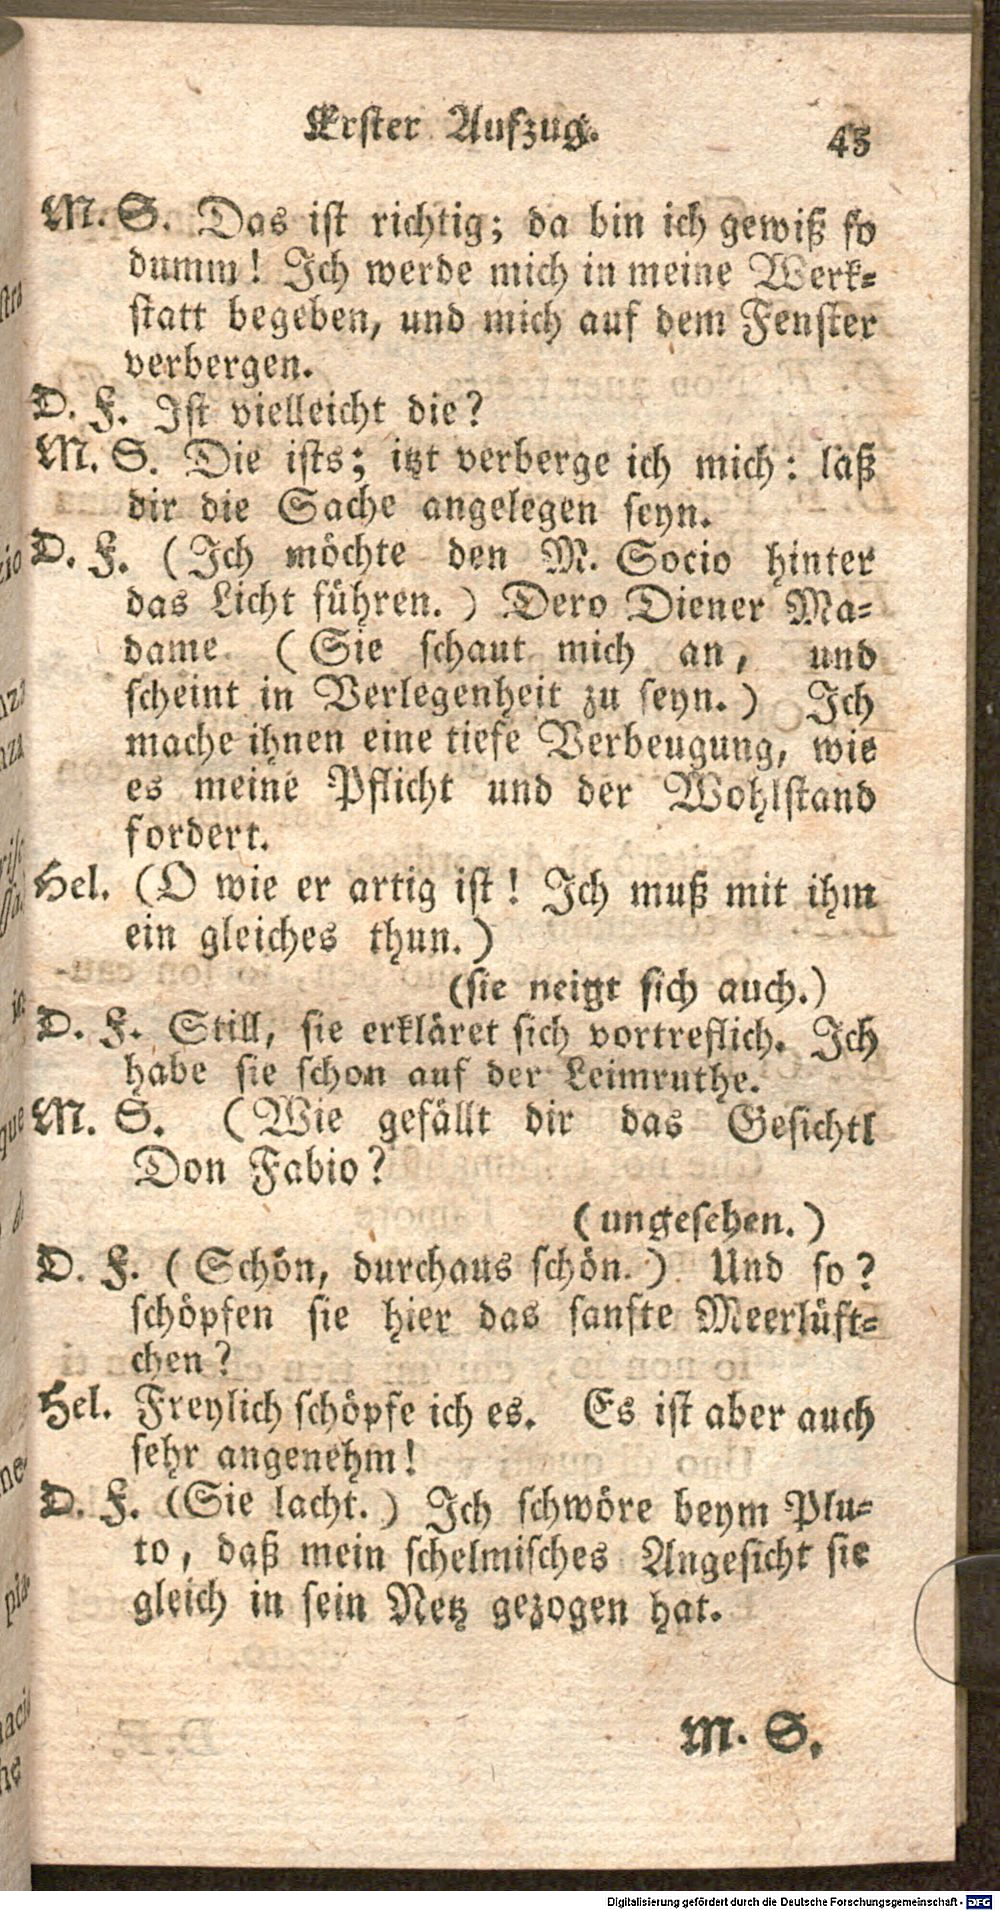 Erster Aufzug. 45
M. S. Das ist richtig; da bin ich gewiß so
dumm! Ich werde mich in meine Werk-
statt begeben, und mich auf dem Fenster
verbergen.
D. F. Ist vielleicht die?
M. S. Die ists; itzt verberge ich mich: laß
dir die Sache angelegen seyn.
D. F. (Ich möchte den M. Socio hinter
das Licht führen.) Dero Diener Ma-
dame. (Sie schaut mich an, und
scheint in Verlegenheit zu seyn.) Ich
mache ihnen eine tiefe Verbeugung, wie
es meine Pflicht und der Wohlstand
fordert.
Hel. (O wie er artig ist! Ich muß mit ihm
ein gleiches thun.)
(sie neigt sich auch.)
D. F. Still, sie erkläret sich vortreflich. Ich
habe sie schon auf der Leimruthe.
M. S. (Wie gefällt dir das Gesichtl
Don Fabio?
(ungesehen.)
D. F. (Schön, durchaus schön.) Und so?
schöpfen sie hier das sanfte Meerlüft-
chen?
Hel. Freylich schöpfe ich es. Es ist aber auch
sehr angenehm!
D. F. (Sie lacht.) Ich schwöre beym Plu-
to, daß mein schelmisches Angesicht sie
gleich in sein Netz gezogen hat.
M. S.
Digitalisierung gefördert durch die Deutsche Forschungsgemeinschaft - DFG